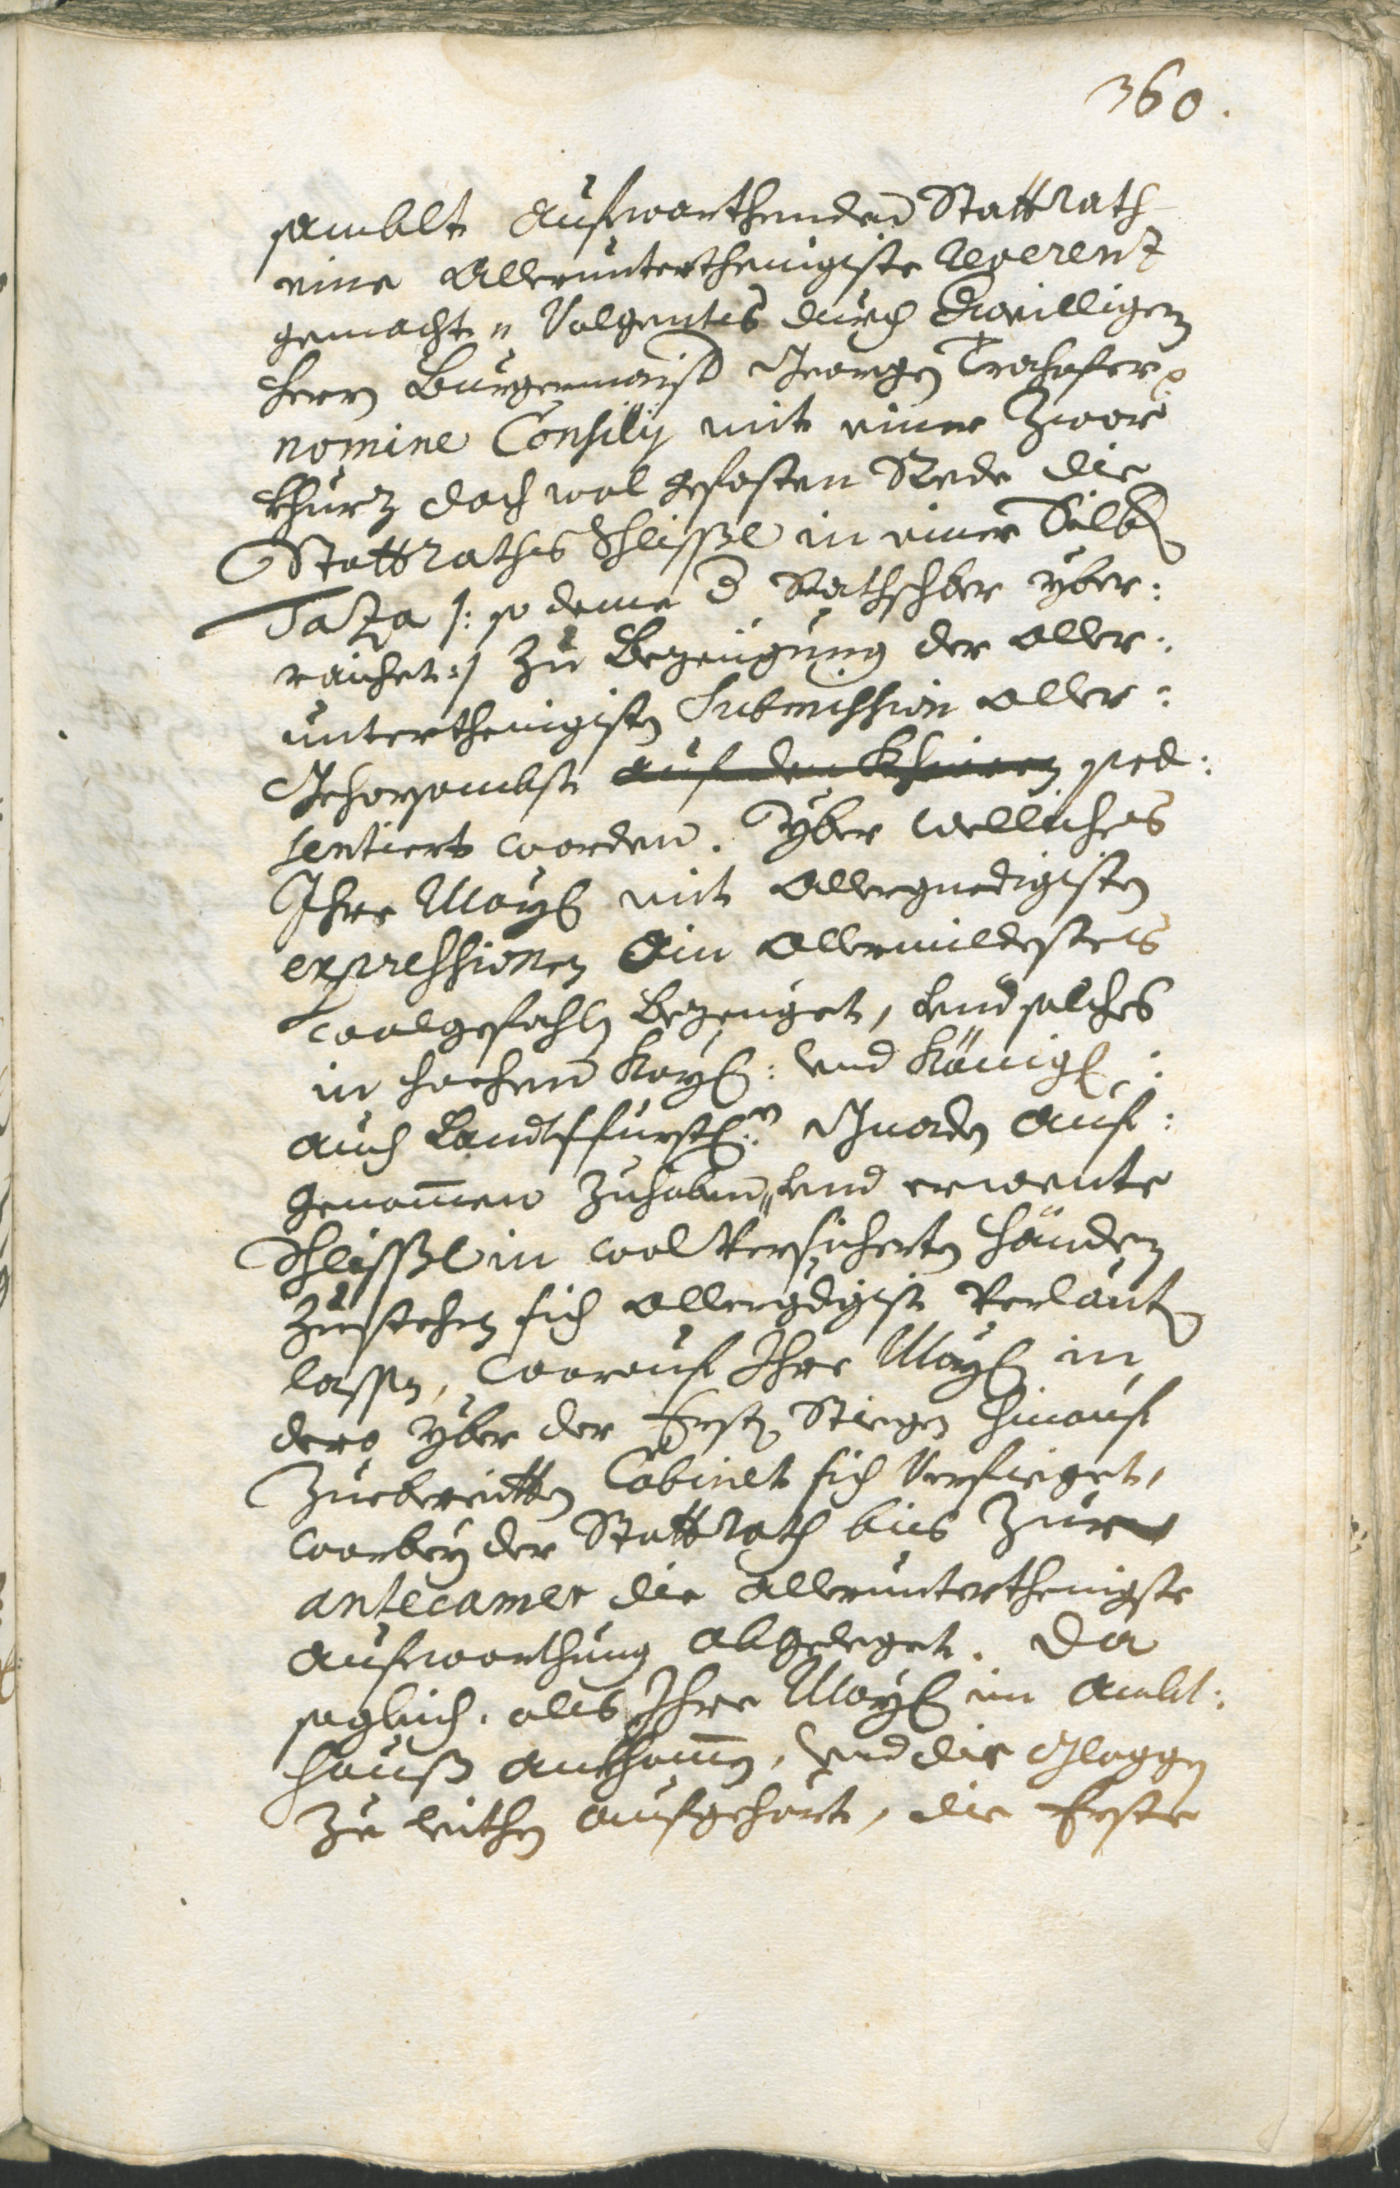 360.
samblt aufwarthenden Stattrath
eine allerunterthenigiste reverenz
gemacht, Volgentes durch
Herrn Burgermaist Georgen
nomine Consilij mit einer zwar
khurz doch wol gefasten Rede die
Stattrathes Schlißl in einer Silb
Taza /: so deme d Rathschber yber:
raichet :/ zu Bezeugung der aller:
unterthenigisten Submission aller:
Gehorsambst auf den Khnieen præ:
sentiert worden. Yber welliches
Ihre May mit allergnedigisten
expressionen ein allermildestes
wolgefahlen bezeuget, und solches
in hochen Kay: und Königl:
auch Landtsfürstl:n Gnaden auf:
genommen zuhaben, und erwente
Schlißl in wol versicherten Händen
zustehen sich allergdigist verlauten
lassen, worauf Ihre May in
dero yber der Ersten Stiegen hinauf
zuebereitten Cabinet sich verfieget,
worbey der Stattrath bis zur
antecamer die allerunterthenigste
aufwarthung abgeleget. Da
sogleich, als Ihre May im Ambt:
hauß ankhommen, und die Gloggen
zu leithen aufgehört, die Erste